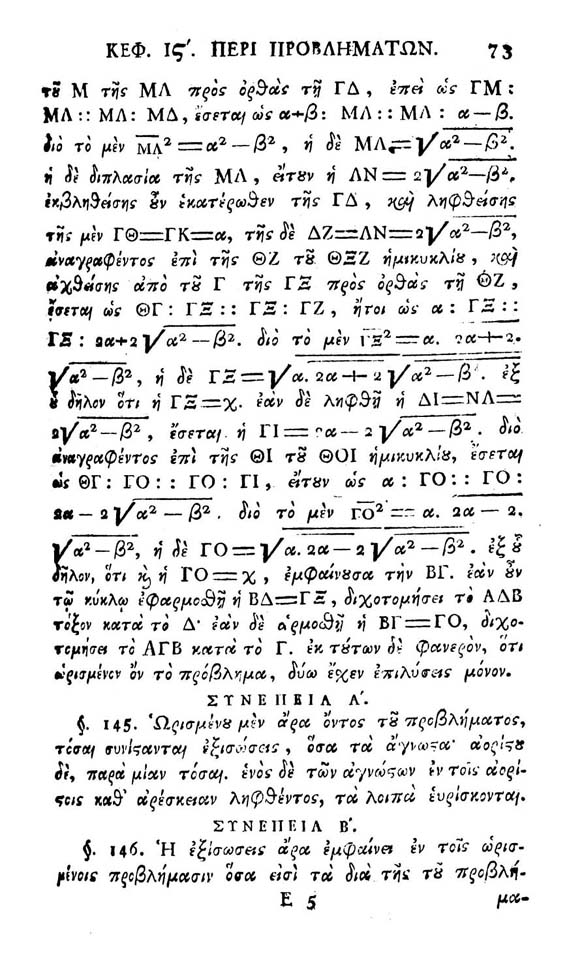 ΚΕΦ. Ιϛ΄. ΠΕΡΙ ΠΡΟΒΛΗΜΑΤΩΝ. 73
τοῦ Μ τῆς ΜΛ πρὸς ὀρθὰς τῇ ΓΔ, ἐπεὶ ὡς ΓΜ:
ΜΛ :: ΜΛ: ΜΔ, ἔσεται ὡς α+β: ΜΛ :: ΜΛ : α — β.
διὸ τὸ μὲν ΜΛ² = α² — β², ἡ δὲ ΜΛ = √α² — β².
ἡ δὲ διπλασία τῆς ΜΛ, εἴτουν ἡ ΛΝ = 2√α² — β².
ἐκβληθείσης οὖν ἑκατέρωθεν τῆς ΓΔ, καὶ ληφθείσης
τῆς μὲν ΓΘ = ΓΚ = α, τῆς δὲ ΔΖ = ΛΝ = 2√α² — β²,
ἀναγραφέντος ἐπὶ τῆς ΘΖ τοῦ ΘΞΖ ἡμικυκλίου, καὶ
ἀχθείσης ἀπὸ τοῦ Γ τῆς ΓΞ πρὸς ὀρθὰς τῇ ΘΖ,
ἔσεται ὡς ΘΓ: ΓΞ :: ΓΞ: ΓΖ, ἤτοι ὡς α: ΓΞ ::
ΓΞ: 2α+2√α² — β². διὸ τὸ μὲν ΓΞ² = α. 2α + 2.
√α² — β², ἡ δὲ ΓΞ = √α. 2α + 2√α² — β². ἐξ
οὗ δῆλον ὅτι ἡ ΓΞ = χ. ἐὰν δὲ ληφθῇ ἡ ΔΙ = ΝΛ =
2√α² — β², ἔσεται ἡ ΓΙ = 2α — 2√α² — β². διὸ
ἀναγραφέντος ἐπὶ τῆς ΘΙ τοῦ ΘΟΙ ἡμικυκλίου, ἔσεται
ὡς ΘΓ: ΓΟ :: ΓΟ: ΓΙ, εἴτουν ὡς α: ΓΟ :: ΓΟ:
2α — 2√α² — β². διὸ τὸ μὲν ΓΟ² = α. 2α — 2.
√α² — β², ἡ δὲ ΓΟ = √α. 2α — 2√α² — β². ἐξ οὗ
δῆλον, ὅτι καὶ ἡ ΓΟ = χ, ἐμφαίνουσα τὴν ΒΓ. ἐὰν οὖν
τῷ κύκλῳ ἐφαρμοσθῇ ἡ ΒΔ = ΓΞ, διχοτομήσει τὸ ΑΔΒ
τόξον κατὰ τὸ Δ· ἐὰν δὲ ἁρμοσθῇ ἡ ΒΓ = ΓΟ, διχο-
τομήσει τὸ ΑΓΒ κατὰ τὸ Γ. ἐκ τούτων δὲ φανερὸν, ὅτι
ὡρισμένον ὂν τὸ πρόβλημα, δύω ἔχεν ἐπιλύσεις μόνον.
ΣΥΝΕΠΕΙΑ Α΄.
§. 145. Ὡρισμένου μὲν ἄρα ὄντος τοῦ προβλήματος,
τόσαι συνίστανται ἐξισώσεις, ὅσα τὰ ἄγνωστα· ἀορίστου
δὲ, παρὰ μίαν τόσαι. ἑνὸς δὲ τῶν ἀγνώστων ἐν τοῖς ἀορί-
στοις καθ᾽ ἀρέσκειαν ληφθέντος, τὰ λοιπὰ ἑυρίσκονται.
ΣΥΝΕΠΕΙΑ Β΄.
§. 146. Ἡ ἐξίσωσεις ἄρα ἐμφαίνει ἐν τοῖς ὡρισ-
μένοις προβλήμασιν ὅσα εἰσὶ τὰ διὰ τῆς τοῦ προβλή-
Ε 5 μα-